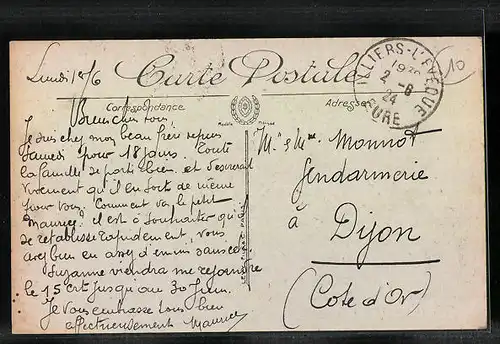 Lundi
Carte Postale
Correspondance
Adresse
ILLIERS-L'EVEQUE
2 -6
24
EURE
10
Bien chers tous,
Je suis chez mon beau frère depuis
Samedi pour 18 jours. Toute
la famille se porte bien et désirerait
vivement qu'il en soit de même
pour vous. Comment va le petit
Maurice? il est à souhaiter qu'il
se rétablisse rapidement, vous
avez bien eu assez d'ennuis sans cela.
Suzanne viendra me rejoindre
le 15 crt jusqu'au 30 Juin.
Je vous embrasse tous bien
affectueusement Maurice
Mr & Mme Monnot
Gendarmerie
à
Dijon
(Cote d'Or)